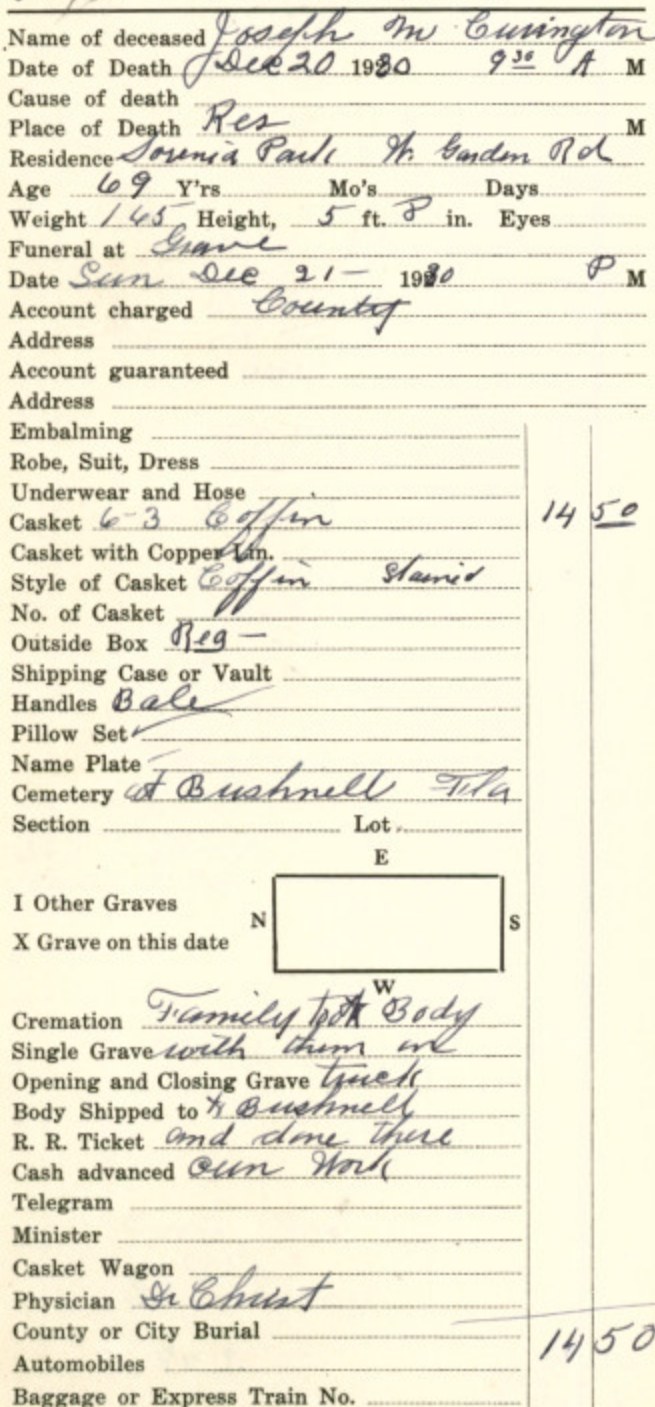 Name of deceased Joseph M Curington
Date of Death Dec 20 1930 9 30 A M
Cause of death
Place of Death Res M
Residence Park W Garden Rd
Age 69 Y'rs Mo's Days
Weight 165 Height, 5 ft. 8 in. Eyes
Funeral at Grave
Date Sun Dec 21 - 1930 P M
Account charged County
Address
Account guaranteed
Address
Embalming
Robe, Suit, Dress
Underwear and Hose
Casket 6-3 Coffin 14 50
Casket with Copper Lin.
Style of Casket Coffin Stained
No. of Casket
Outside Box Reg -
Shipping Case or Vault
Handles Bale
Pillow Set
Name Plate
Cemetery at Bushnell Fla
Section Lot
E
I Other Graves
N S
X Grave on this date
W
Cremation Family took Body
Single Grave with them in
Opening and Closing Grave truck
Body Shipped to to Bushnell
R. R. Ticket and done there
Cash advanced own Work
Telegram
Minister
Casket Wagon
Physician Dr Christ
County or City Burial 14 50
Automobiles
Baggage or Express Train No.